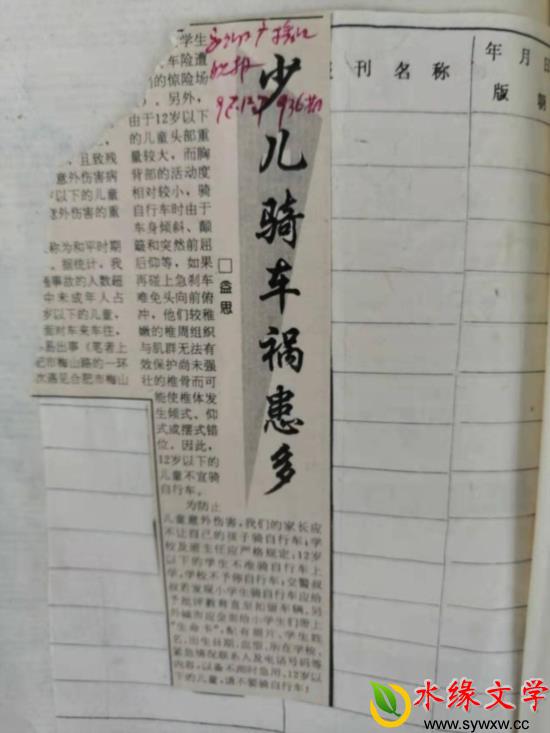 少儿骑车祸患多
□益思
学生
车险遭
的惊险场
。另外，
由于12岁以下
的儿童头部重
量较大，而胸
背部的活动度
相对较小，骑
自行车时由于
车身倾斜、颠
簸和突然前屈
后仰等，如果
再碰上急刹车
难免头向前俯
冲，他们较稚
嫩的椎周组织
与肌群无法有
效保护尚未强
壮的椎骨而可
能使椎体发
生倾式、仰
式或摆式错
位。因此，
12岁以下的
儿童不宜骑
自行车。
且致残
意外伤害病
岁以下的儿童
意外伤害的重
称为和平时期
。据统计，我
事故的人数超
中未成年人占
岁以下的儿童，
面对车来车往，
易出事（笔者上
肥市梅山路的一环
次遇见合肥市梅山
为防止
儿童意外伤害，我们的家长应
不让自己的孩子骑自行车；学
校及班主任应严格规定：12岁
以下的学生不准骑自行车上
学，学校不予停自行车；交警叔
叔若发现小学生骑自行车应给
予批评教育直至扣留车辆。另
外城市应全面给小学生们带上
“生命卡”，配有照片、学生姓
名、出生日期、血型、所在学校、
紧急情况联系人及电话号码等
内容，以备不测时急用。12岁以
下的儿童，请不要骑自行车！
刊名称
年月日
版期
水缘文学
www.sywxw.cc